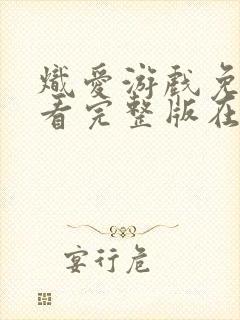 熾愛游戲免
看完整版在
宴行危